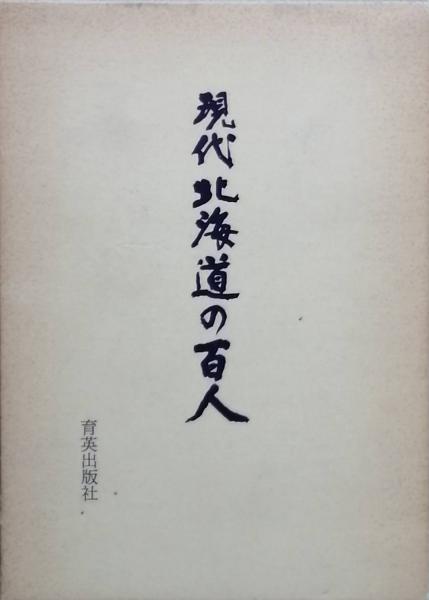 現代北海道の百人
育英出版社